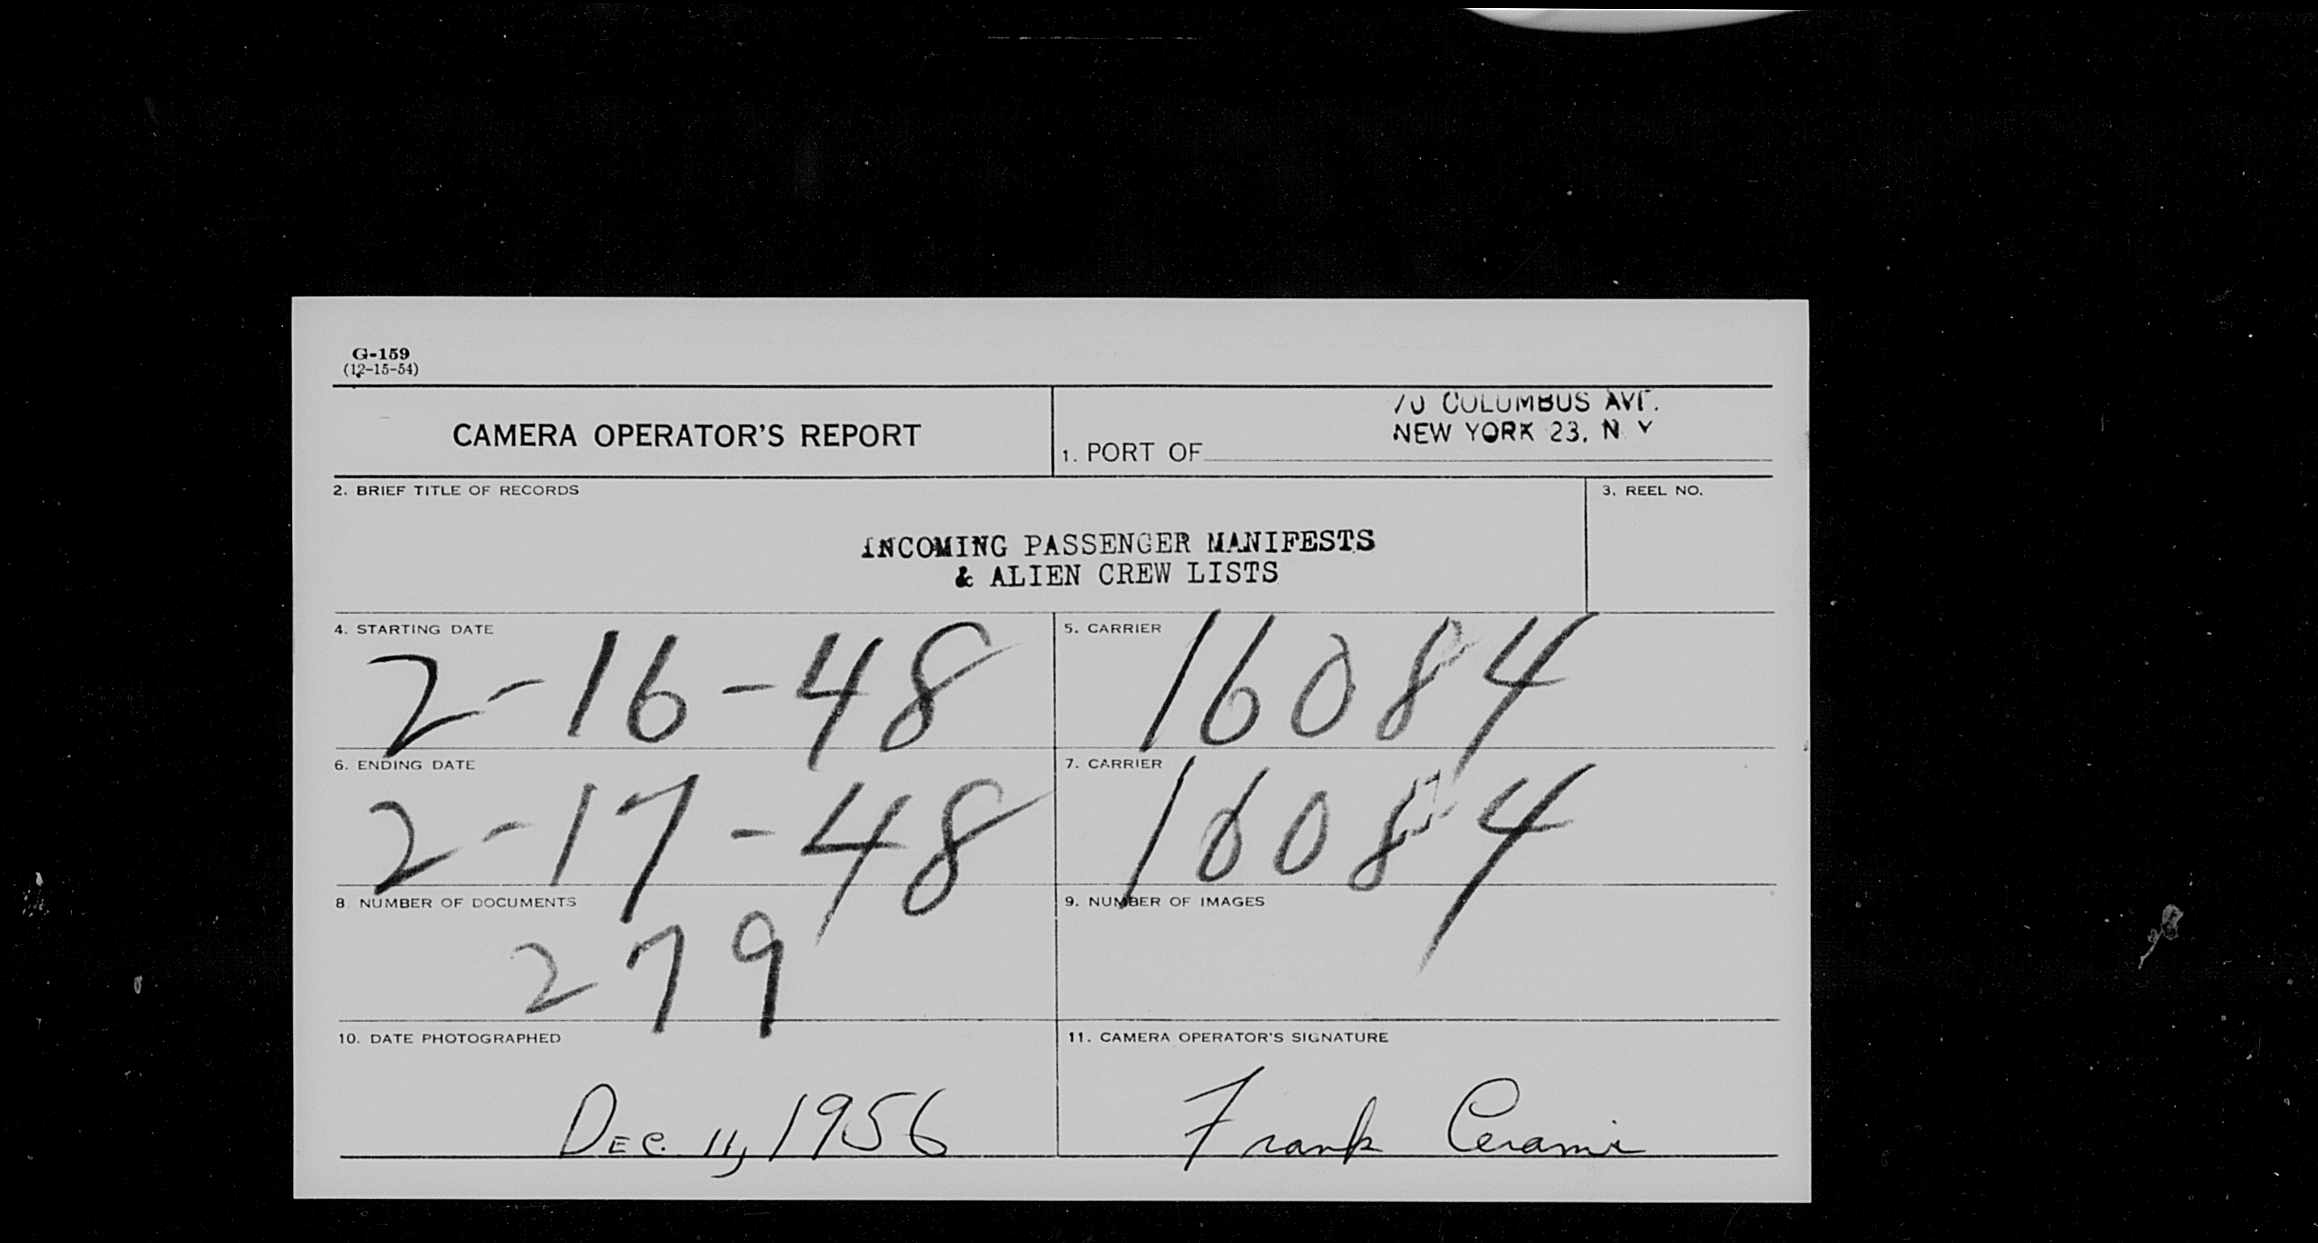 G-159
(12-15-54)
CAMERA OPERATOR'S REPORT
70 COLUMBUS AVE.
NEW YORK 23, N. Y
1. PORT OF
2. BRIEF TITLE OF RECORDS
3. REEL NO.
INCOMING PASSENGER MANIFESTS
& ALIEN CREW LISTS
4. STARTING DATE
2-16-48
5. CARRIER
16084
6. ENDING DATE
2-17-48
7. CARRIER
16084
8 NUMBER OF DOCUMENTS
279
9. NUMBER OF IMAGES
10. DATE PHOTOGRAPHED
DEC. 11, 1956
11. CAMERA OPERATOR'S SIGNATURE
Frank Cerami